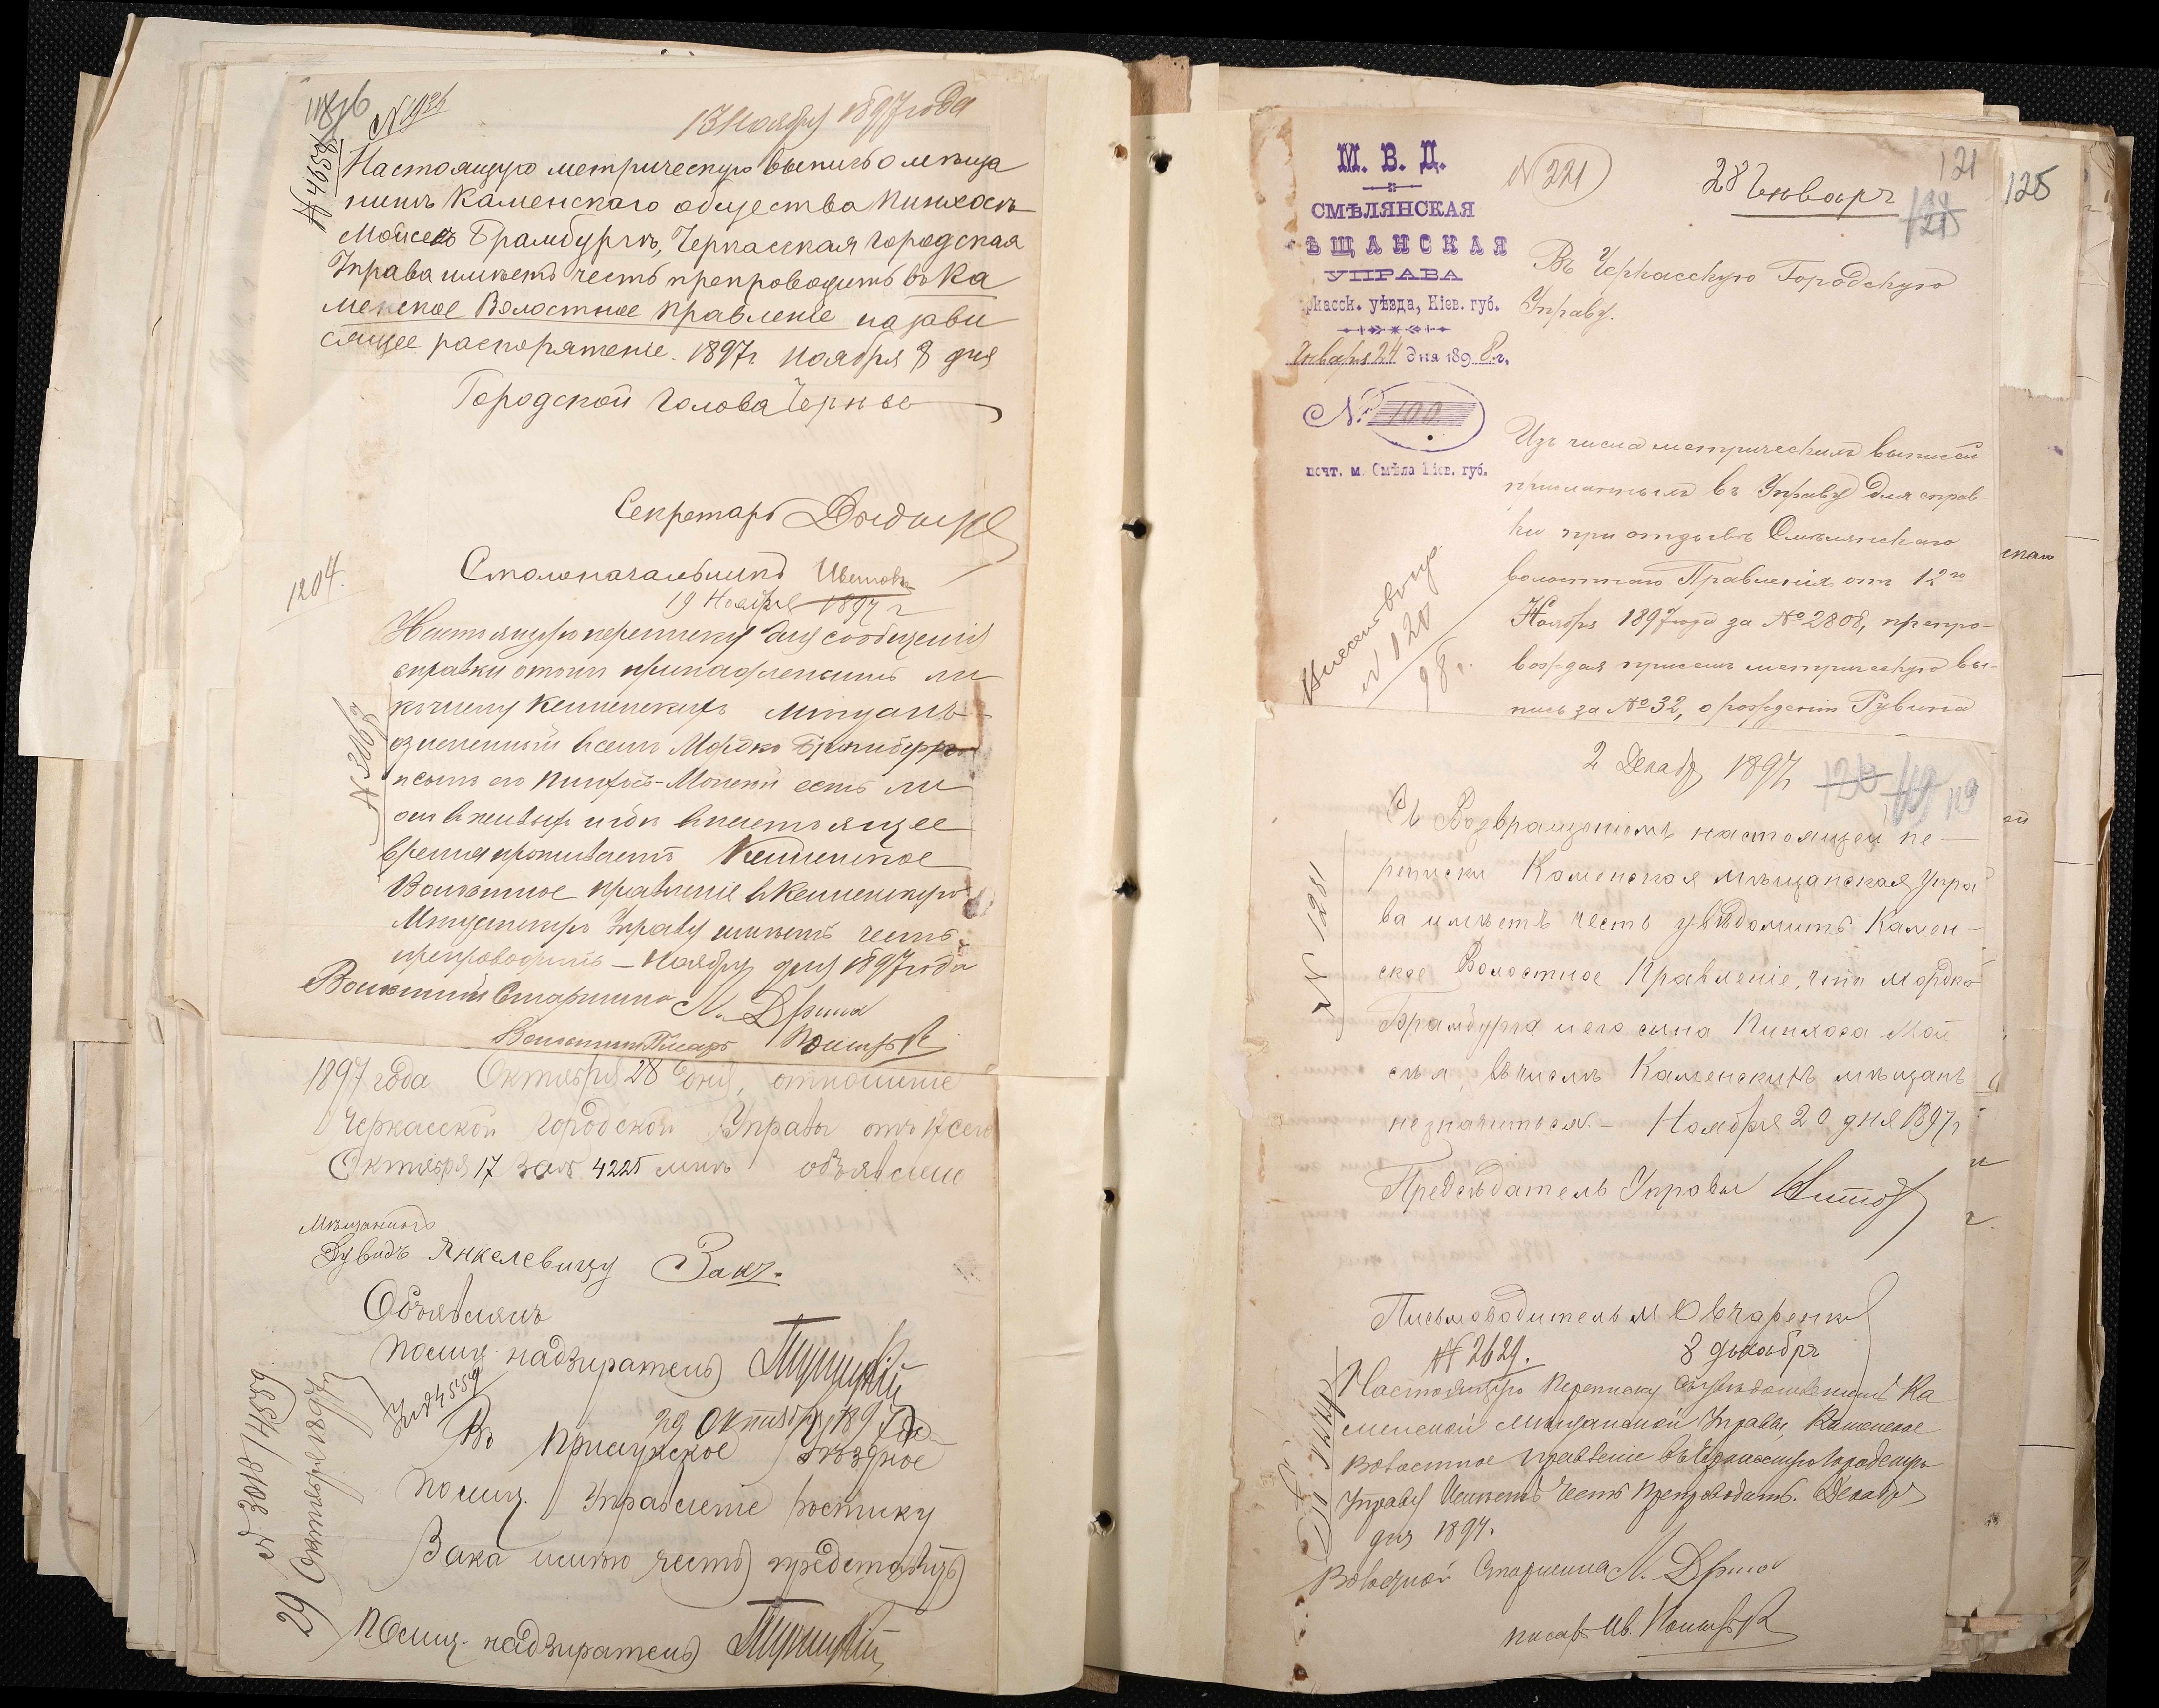 118
N 1934
13 Ноября 1897 года
N 4658
Настоящую метрическую выпись о мѣща
нинѣ Каменскаго общества Пинхосъ
Мойсей Брамбургъ, Черкасская городская
Управа имѣетъ честь препроводить въ Ка
менское Волостное Правленіе на зави
сящее распоряженіе. 1897 г Ноября 8 дня
Городской Голова Черне
Секретарь
Столоначальникъ
1204.
19 Ноября 1897 г
N 3067
Настоящую переписку для сообщенія
справки о томъ принадлежитъ ли
къ числу Каменскихъ мѣщанъ
означенный в семъ Мордко Брамбургъ
и сынъ его Пинхосъ-Мойсей есть ли
онъ в живыхъ и гдѣ в настоящее
время проживаетъ Каменское
Волостное правленіе в Каменскую
Мѣщанскую Управу имѣетъ честь
препроводить – Ноября дня 1897 года
Волостный Старшина Л. Дрина
Волостный Писарь
1897 года Октября 28 дня, отношеніе
Черкасской городской Управы отъ 17 сего
Октября 17 за № 4225 мнѣ объявлено
Мѣщанинъ
Дувидъ Янкелевичу Закъ.
Объявлялъ
Полиц. надзиратель
29 Октября 1897 г
Въ Прилукское уѣздное
Полиц. Управленіе росписку
Зака имѣю честь представить
Полиц. надзиратель
29 Октября 1897 г
М. В. Д.
СМѢЛЯНСКАЯ
ѢЩАНСКАЯ
УПРАВА
ркасск. уѣзда, Кіев. губ.
Января 24 дня 1898 г.
№ 100
почт. м. Смѣла Кіев. губ.
N 221
28 Января
121
125
Въ Черкасскую Городскую
Управу.
Изъ числа метрическихъ выписей
присланныхъ въ Управу для справ-
ки при отзывѣ Смѣлянскаго
волостнаго Правленія отъ 12го
Ноября 1897 года за № 2808, препро-
вождая присемъ метрическую вы-
пись за № 32, о рожденіи Рувина
N 120
98 г.
2 Декабр 1897
119
N 1281
Съ Возвращеніемъ настоящей пе-
реписки Каменская мѣщанская Упра
ва имѣетъ честь увѣдомить Камен-
ское Волостное Правленіе, что Мордко
Брамбурга и его сына Пинхоса Мой
сея, въ числѣ Каменскихъ мѣщанъ
незначится. – Ноября 20 дня 1897 г
Предсѣдатель Управы
Письмоводитель М Овчаренко
N 2629.
8 декабря
Настоящую Переписку съ увѣдомленіемъ Ка
менской Мѣщанской Управы, Каменское
Волостное Правленіе въ Черкасскую Городскую
Управу Имѣетъ Честь Препроводить. Декабря
дня 1897.
Волостной Старшина Л. Дрина
писарь Ив.